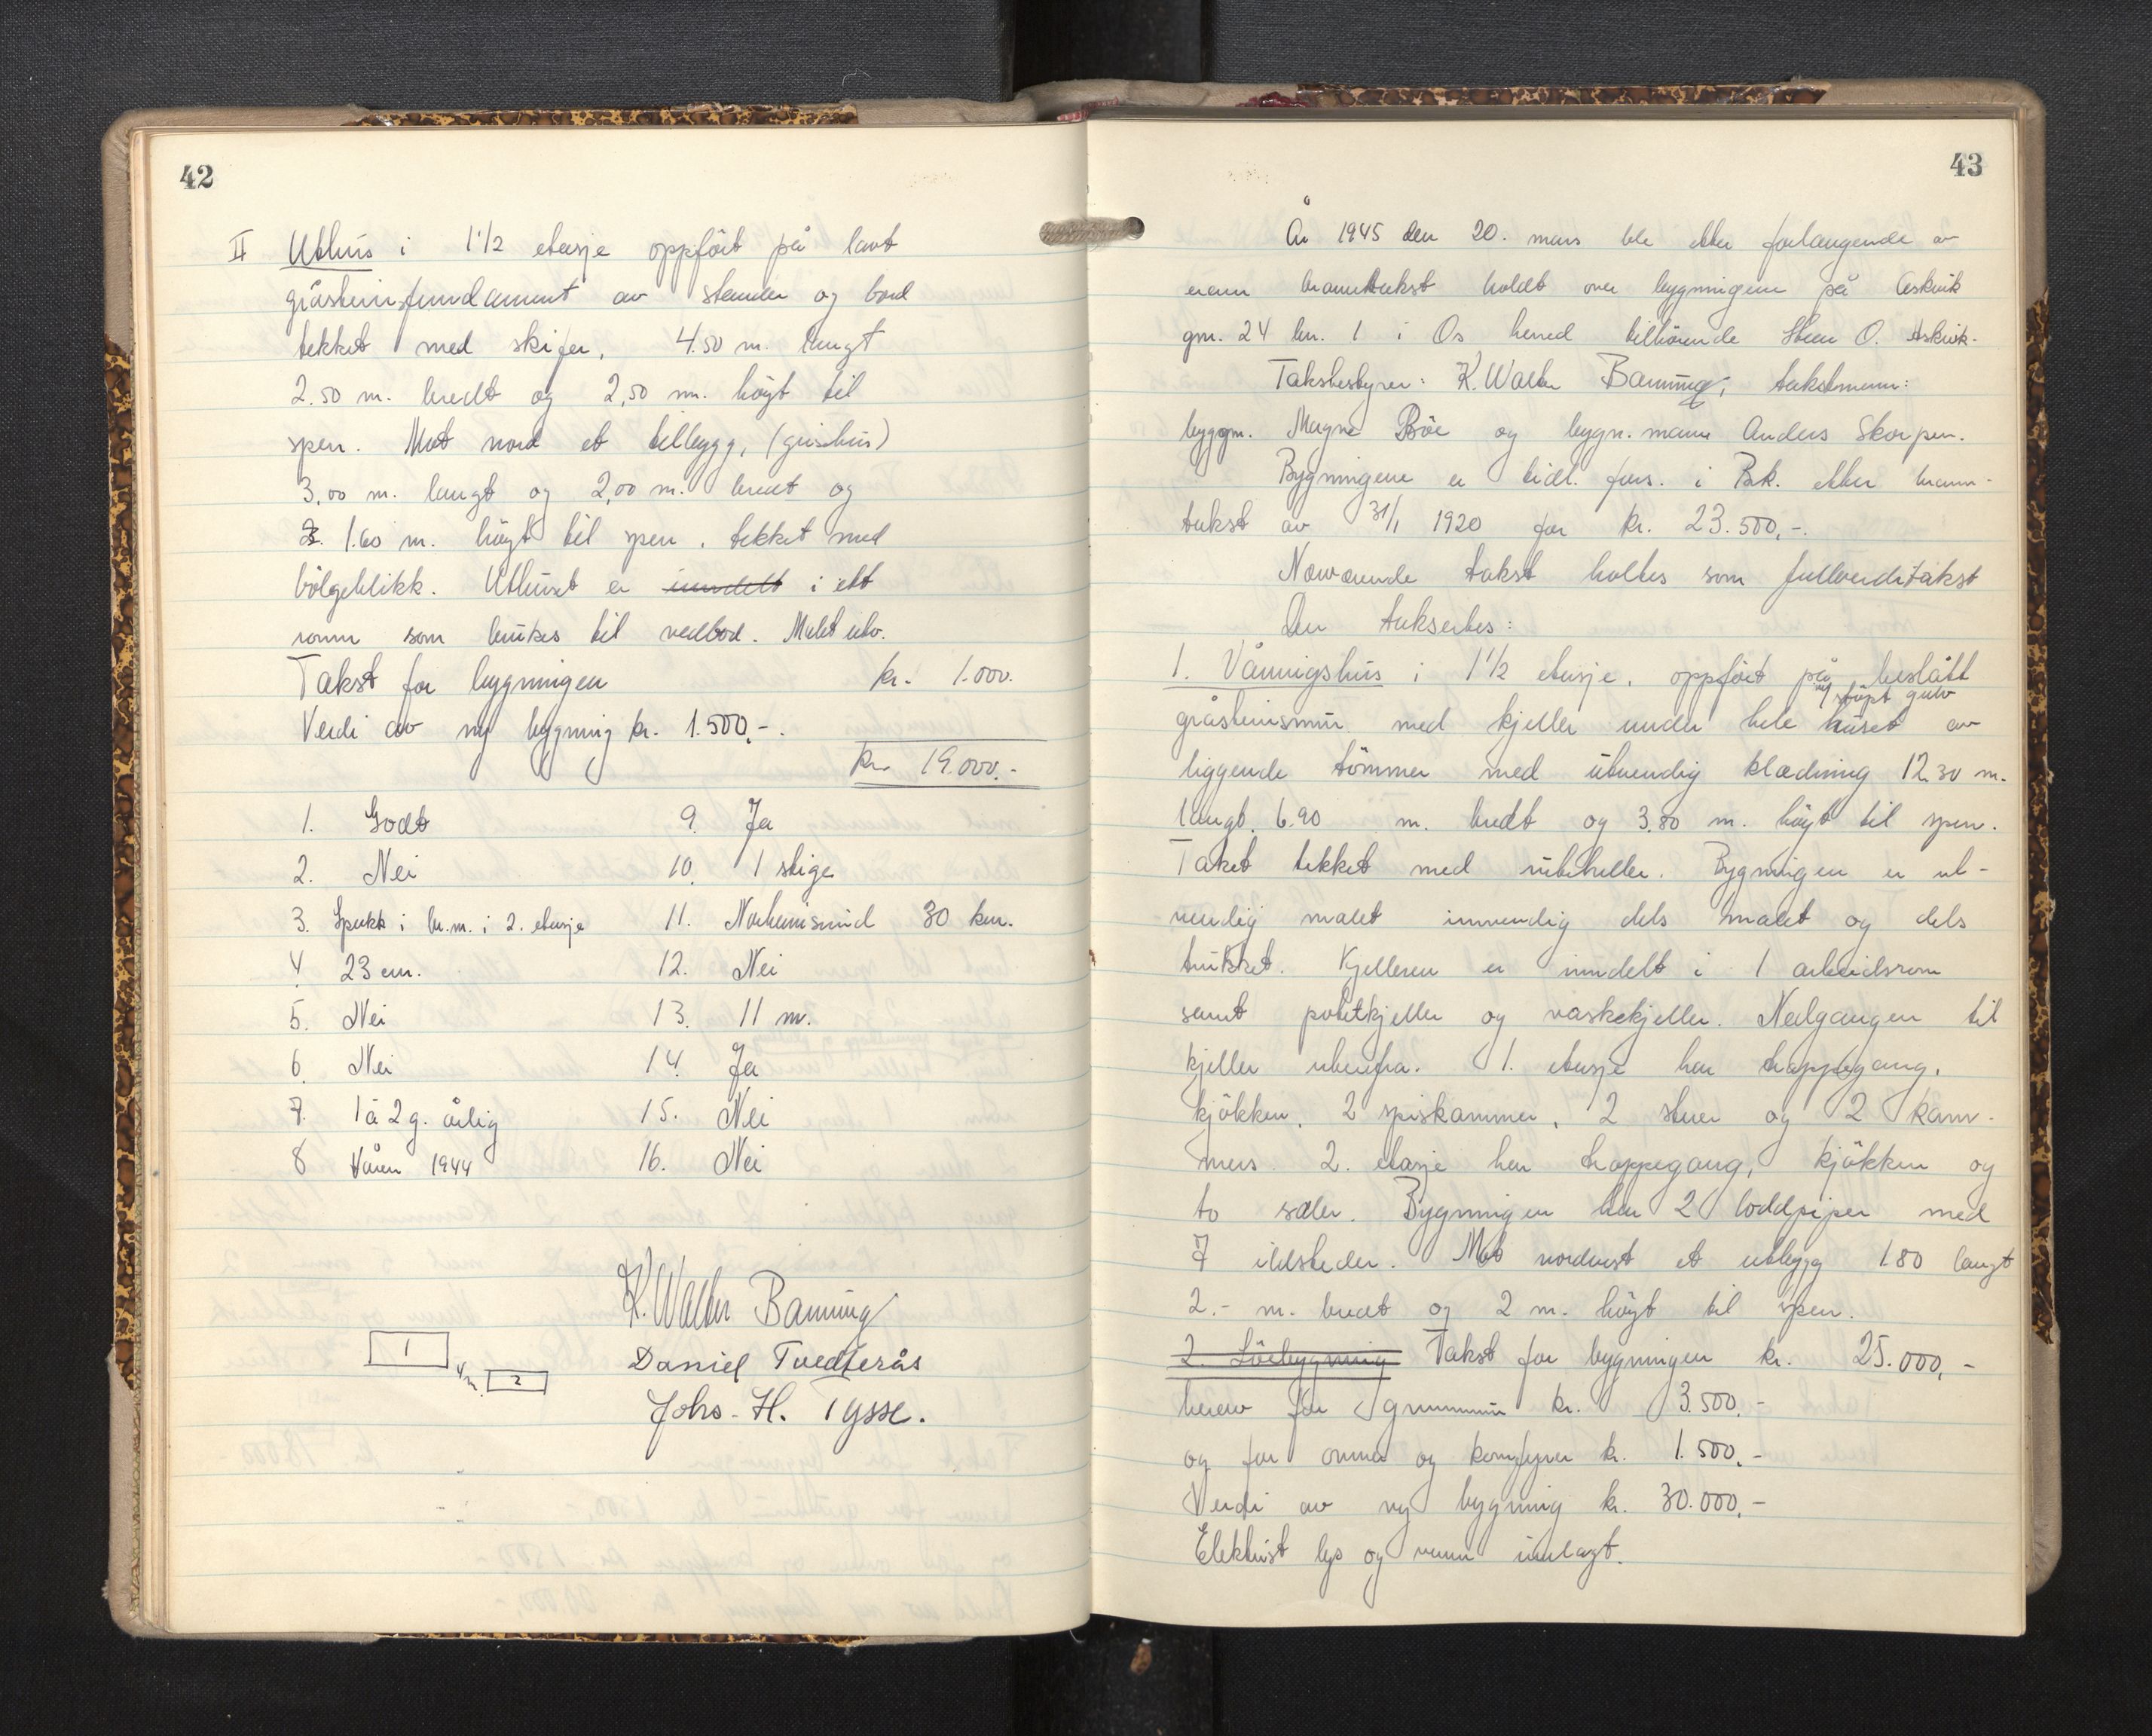 42
II Uthus i 1 1/2 etasje oppført på lavt
gråsteinsfundament av stender og bord
tekket med skifer, 4.50 m. langt
2.50 m. bredt og 2,50 m. høyt til
sper. Mot nord et tilbygg, (grisehus)
3,00 m. langt og 2,00 m. bredt og
1.60 m. høyt til sper, tekket med
bølgeblikk. Uthuset er inndelt i ett
rom som brukes til vedbod. Malt utv.
Takst for bygningen kr. 1.000.
Verdi av ny bygning kr. 1.500,-.
kr. 19.000.-
1. Godt 9. Ja
2. Nei 10. 1 stige
3. Spekk i br.m. i 2. etasje 11. Norheimsund 30 km.
4 23 cm. 12. Nei
5. Nei 13. 11 m.
6. Nei 14. Ja
7. 1 à 2 g. årlig 15. Nei
8 Våren 1944 16. Nei
K. Walter Banning
1 4 m. 2
Daniel Tvedterås
Johs. H. Tysse.
43
År 1945 den 20. mars ble etter forlangende av
eieren branntakst holdt over bygningene på Askvik
gnr. 24 bnr. 1 i Os herred tilhørende Sten O. Askvik.
Takstbestyrer: K. Walter Banning, takstmenn:
byggm. Magne Bøe og bygn. mann Anders Skorpen.
Bygningene er tidl. fors. i Bk. etter brann-
takst av 31/1 1920 for kr. 23.500,-.
Nærværende takst holdes som fullverditakst
Der takseres:
1. Våningshus i 1 1/2 etasje, oppført på beslått
m/ støpt gulv
gråsteinsmur med kjeller under hele huset av
liggende tømmer med utvendig kledning 12.30 m.
langt. 6.90 m. bredt og 3.80 m. høyt til sper.
Taket tekket med ruteheller. Bygningen er ut-
vendig malet innvendig dels malet og dels
trukket. Kjelleren er inndelt i 1 arbeidsrom
samt potetkjeller og vaskekjeller. Nedgangen til
kjeller utenfra. 1. etasje har trappegang,
kjøkken, 2 spiskammer, 2 stuer og 2 kam-
mers. 2. etasje har trappegang, kjøkken og
to saler. Bygningen har 2 loddpiper med
7 ildsteder. Mot nordvest et utbygg 1.80 langt
2.- m. bredt og 2 m. høyt til sper.
2. Løebygning Takst for bygningen kr. 25.000,-
herav for grunnmur kr. 3.500.-
og for ovner og komfyrer kr. 1.500.-
Verdi av ny bygning kr. 30.000,-
Elektrist lys og varme innlagt.